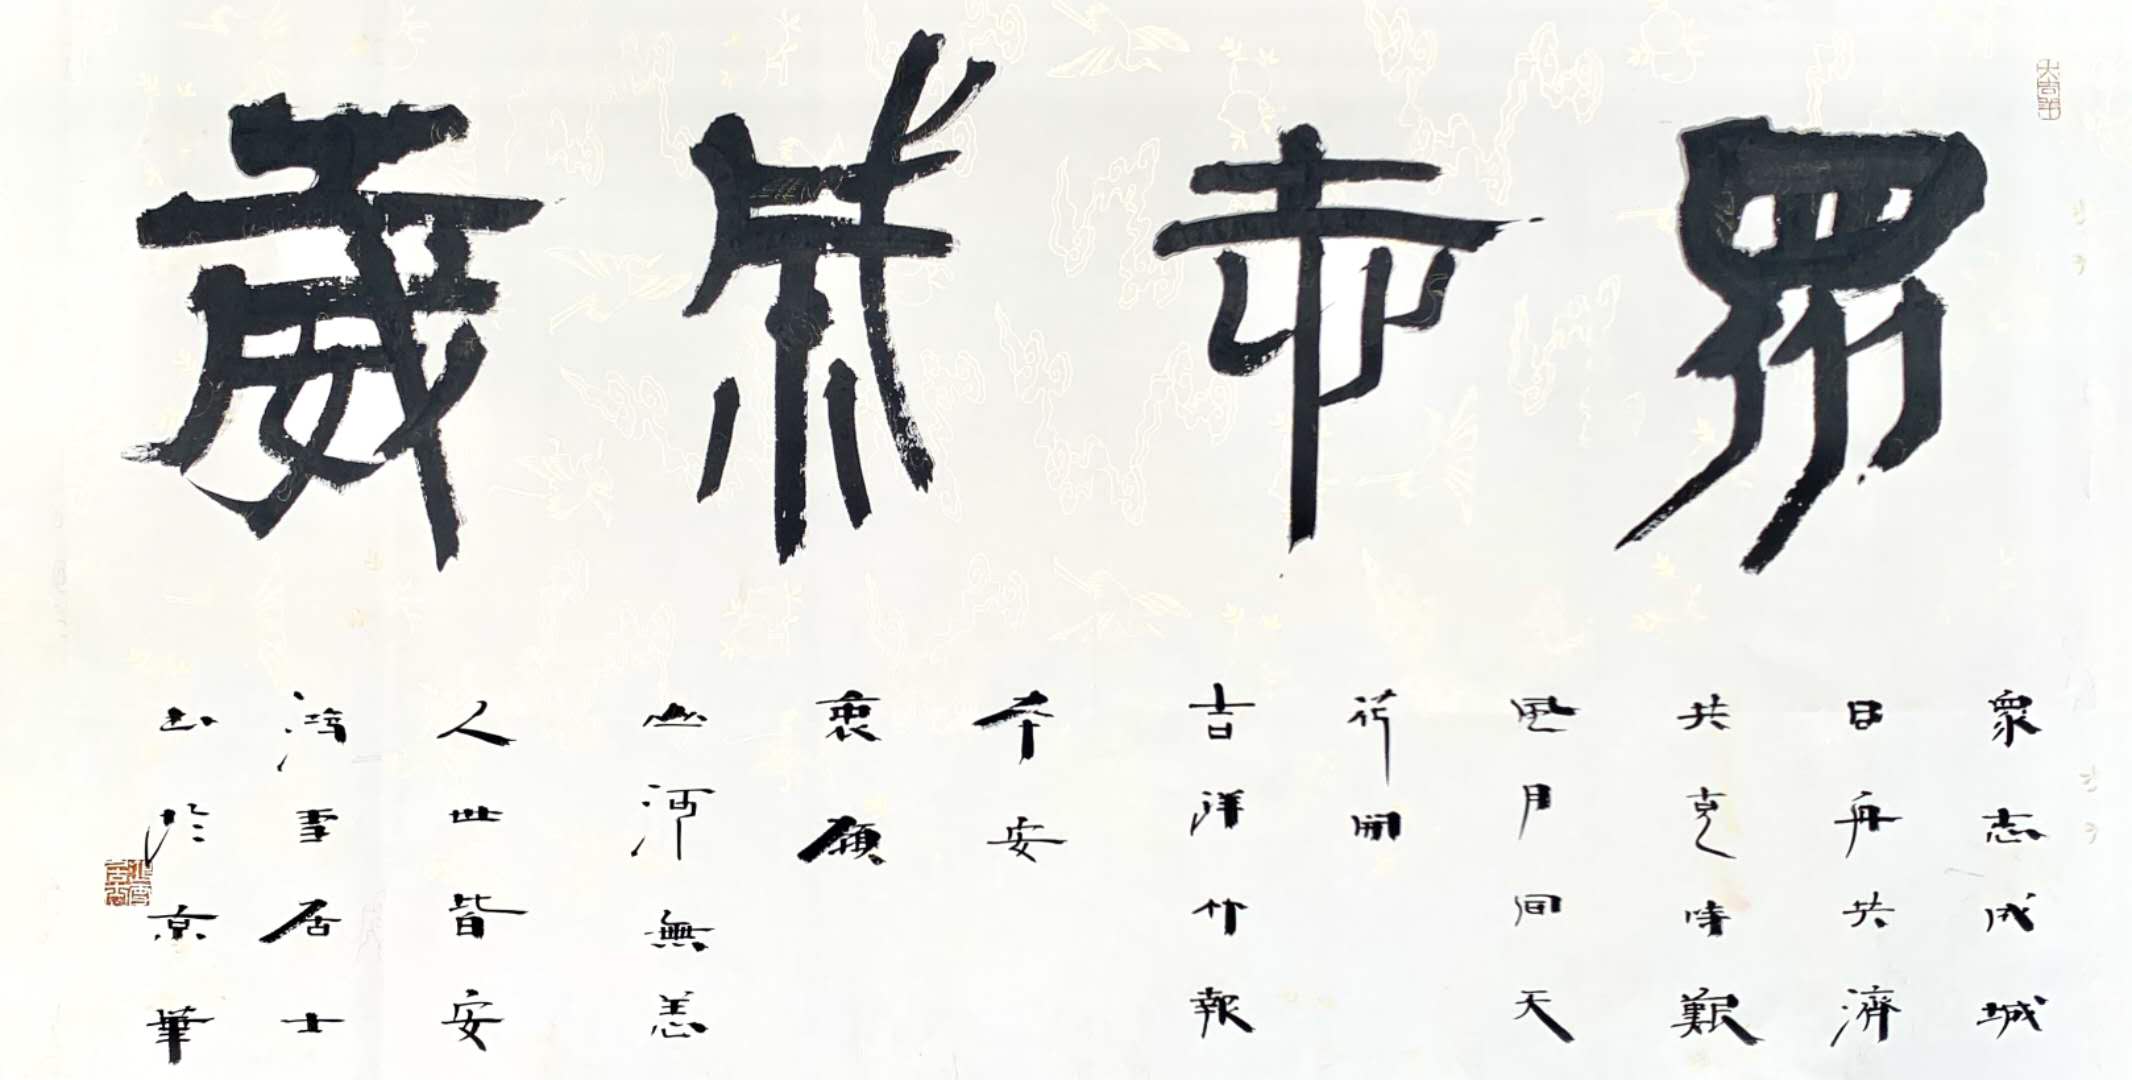 眾志成城
眾志成城
同舟共濟
共克時艱
風月同天
花開
吉祥竹報
平安
衷願
山河無恙
人世皆安
雪居士
於京華